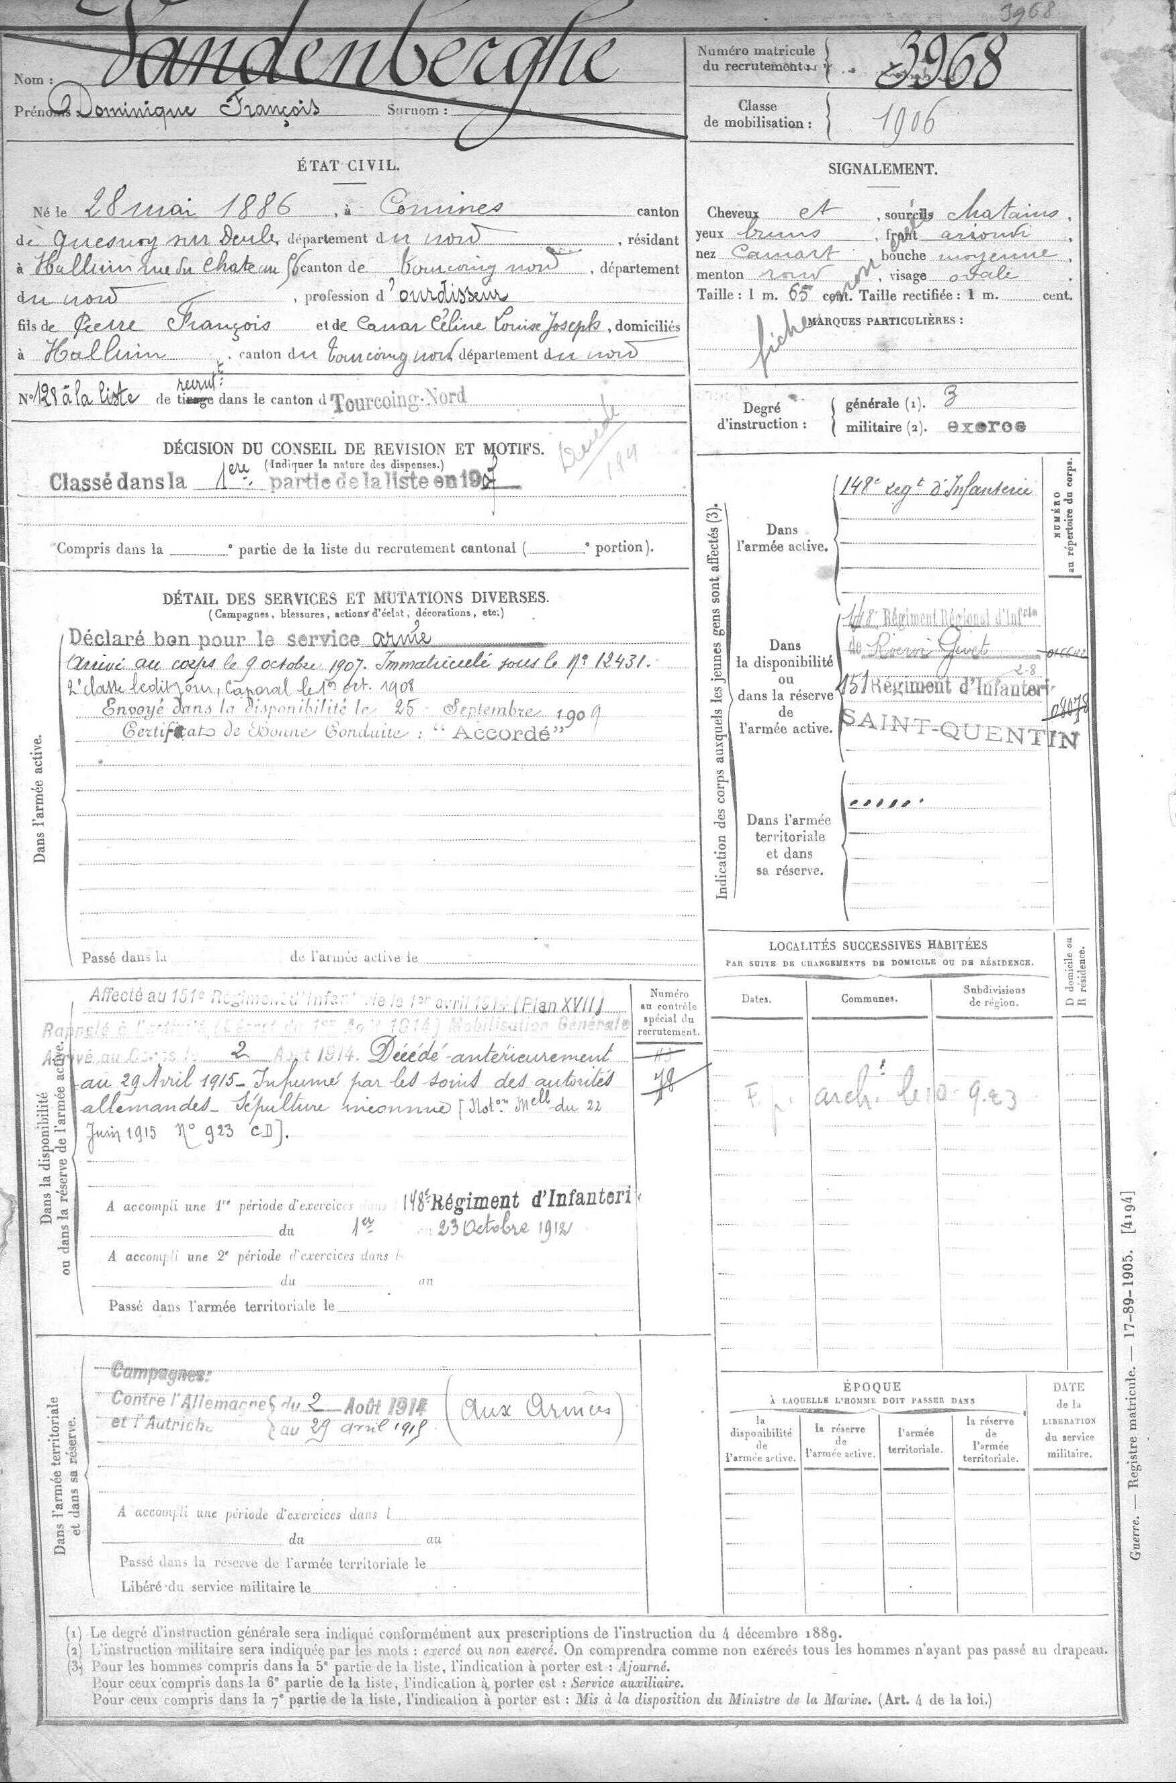 3968
Nom : Vandenberghe
Prénoms : Dominique François Surnom :
Numéro matricule
du recrutement : 3968
Classe
de mobilisation : 1906
ÉTAT CIVIL.
Né le 28 mai 1886, à Comines canton
de Quesnoy sur Deule, département du nord, résidant
à Halluin rue du Chateau 56 canton de tourcoing nord, département
du nord, profession d'ourdisseur
fils de Pierre François et de Canar Céline Louise Joseph, domiciliés
à Halluin, canton du tourcoing nord département du nord
N° 128 à la liste de recrut.t dans le canton d Tourcoing-Nord
DÉCISION DU CONSEIL DE REVISION ET MOTIFS.
(Indiquer la nature des dispenses.)
Classé dans la 1ere partie de la liste en 1907
Décédé
Compris dans la ° partie de la liste du recrutement cantonal ( ° portion).
SIGNALEMENT.
Cheveux et, sourcils chatains,
yeux bruns, front arrondi,
nez Camart, bouche moyenne,
menton rond, visage ovale.
Taille : 1 m. 65 cent. Taille rectifiée : 1 m. cent.
MARQUES PARTICULIÈRES :
fiche non
Degré
d'instruction :
générale (1). 3
militaire (2). exercé
DÉTAIL DES SERVICES ET MUTATIONS DIVERSES.
(Campagnes, blessures, actions d'éclat, décorations, etc.)
Dans l'armée active.
Déclaré bon pour le service armé
Arrivé au corps le 9 octobre 1907. Immatriculé sous le N° 12431.
2e classe ledit jour, Caporal le 1er oct. 1908
Envoyé dans la disponibilité le 25 Septembre 1909
Certificat de Bonne Conduite : "Accordé"
Passé dans la de l'armée active le
Indication des corps auxquels les jeunes gens sont affectés (3).
NUMÉRO
au répertoire du corps.
Dans
l'armée active.
148e regt d'Infanterie
Dans
la disponibilité
ou
dans la réserve
de
l'armée active.
148e Régiment Régional d'Infrie
de Rocroi Givet
2-8
151 Régiment d'Infanteri
SAINT-QUENTIN
Dans l'armée
territoriale
et dans
sa réserve.
LOCALITÉS SUCCESSIVES HABITÉES
PAR SUITE DE CHANGEMENTS DE DOMICILE OU DE RÉSIDENCE.
D domicile ou
R résidence.
Dates.
Communes.
Subdivisions
de région.
Dans la disponibilité
ou dans la réserve de l'armée active.
Affecté au 151e Régiment d'Infanterie le 1er avril 1914 (Plan XVII)
Rappelé à l'activité (Décret du 1er Août 1914) Mobilisation Générale
Arrivé au Corps le 2 Août 1914. Décédé antérieurement
au 29 Avril 1915 - Inhumé par les soins des autorités
allemandes - Sépulture inconnue [Noton Mell du 22
Juin 1915 N° 923 CD].
Numéro
au contrôle
spécial du
recrutement.
78
arch. le 10-9-23
A accompli une 1re période d'exercices dans l 148e Régiment d'Infanteri
du 1er au 23 Octobre 1912
A accompli une 2e période d'exercices dans l
du au
Passé dans l'armée territoriale le
Dans l'armée territoriale
et dans sa réserve.
Campagnes:
Contre l'Allemagne du 2 Août 1914
et l'Autriche au 29 avril 1915 (Aux Armées)
A accompli une période d'exercices dans l
du au
Passé dans la réserve de l'armée territoriale le
Libéré du service militaire le
ÉPOQUE
À LAQUELLE L'HOMME DOIT PASSER DANS
la
disponibilité
de
l'armée active.
la réserve
de
l'armée active.
l'armée
territoriale.
la réserve
de
l'armée
territoriale.
DATE
de la
LIBÉRATION
du service
militaire.
(1) Le degré d'instruction générale sera indiqué conformément aux prescriptions de l'instruction du 4 décembre 1889.
(2) L'instruction militaire sera indiquée par les mots : exercé ou non exercé. On comprendra comme non exércés tous les hommes n'ayant pas passé au drapeau.
(3) Pour les hommes compris dans la 5e partie de la liste, l'indication à porter est : Ajourné.
Pour ceux compris dans la 6e partie de la liste, l'indication à porter est : Service auxiliaire.
Pour ceux compris dans la 7e partie de la liste, l'indication à porter est : Mis à la disposition du Ministre de la Marine. (Art. 4 de la loi.)
Guerre. — Registre matricule. — 17-89-1905. [4194]